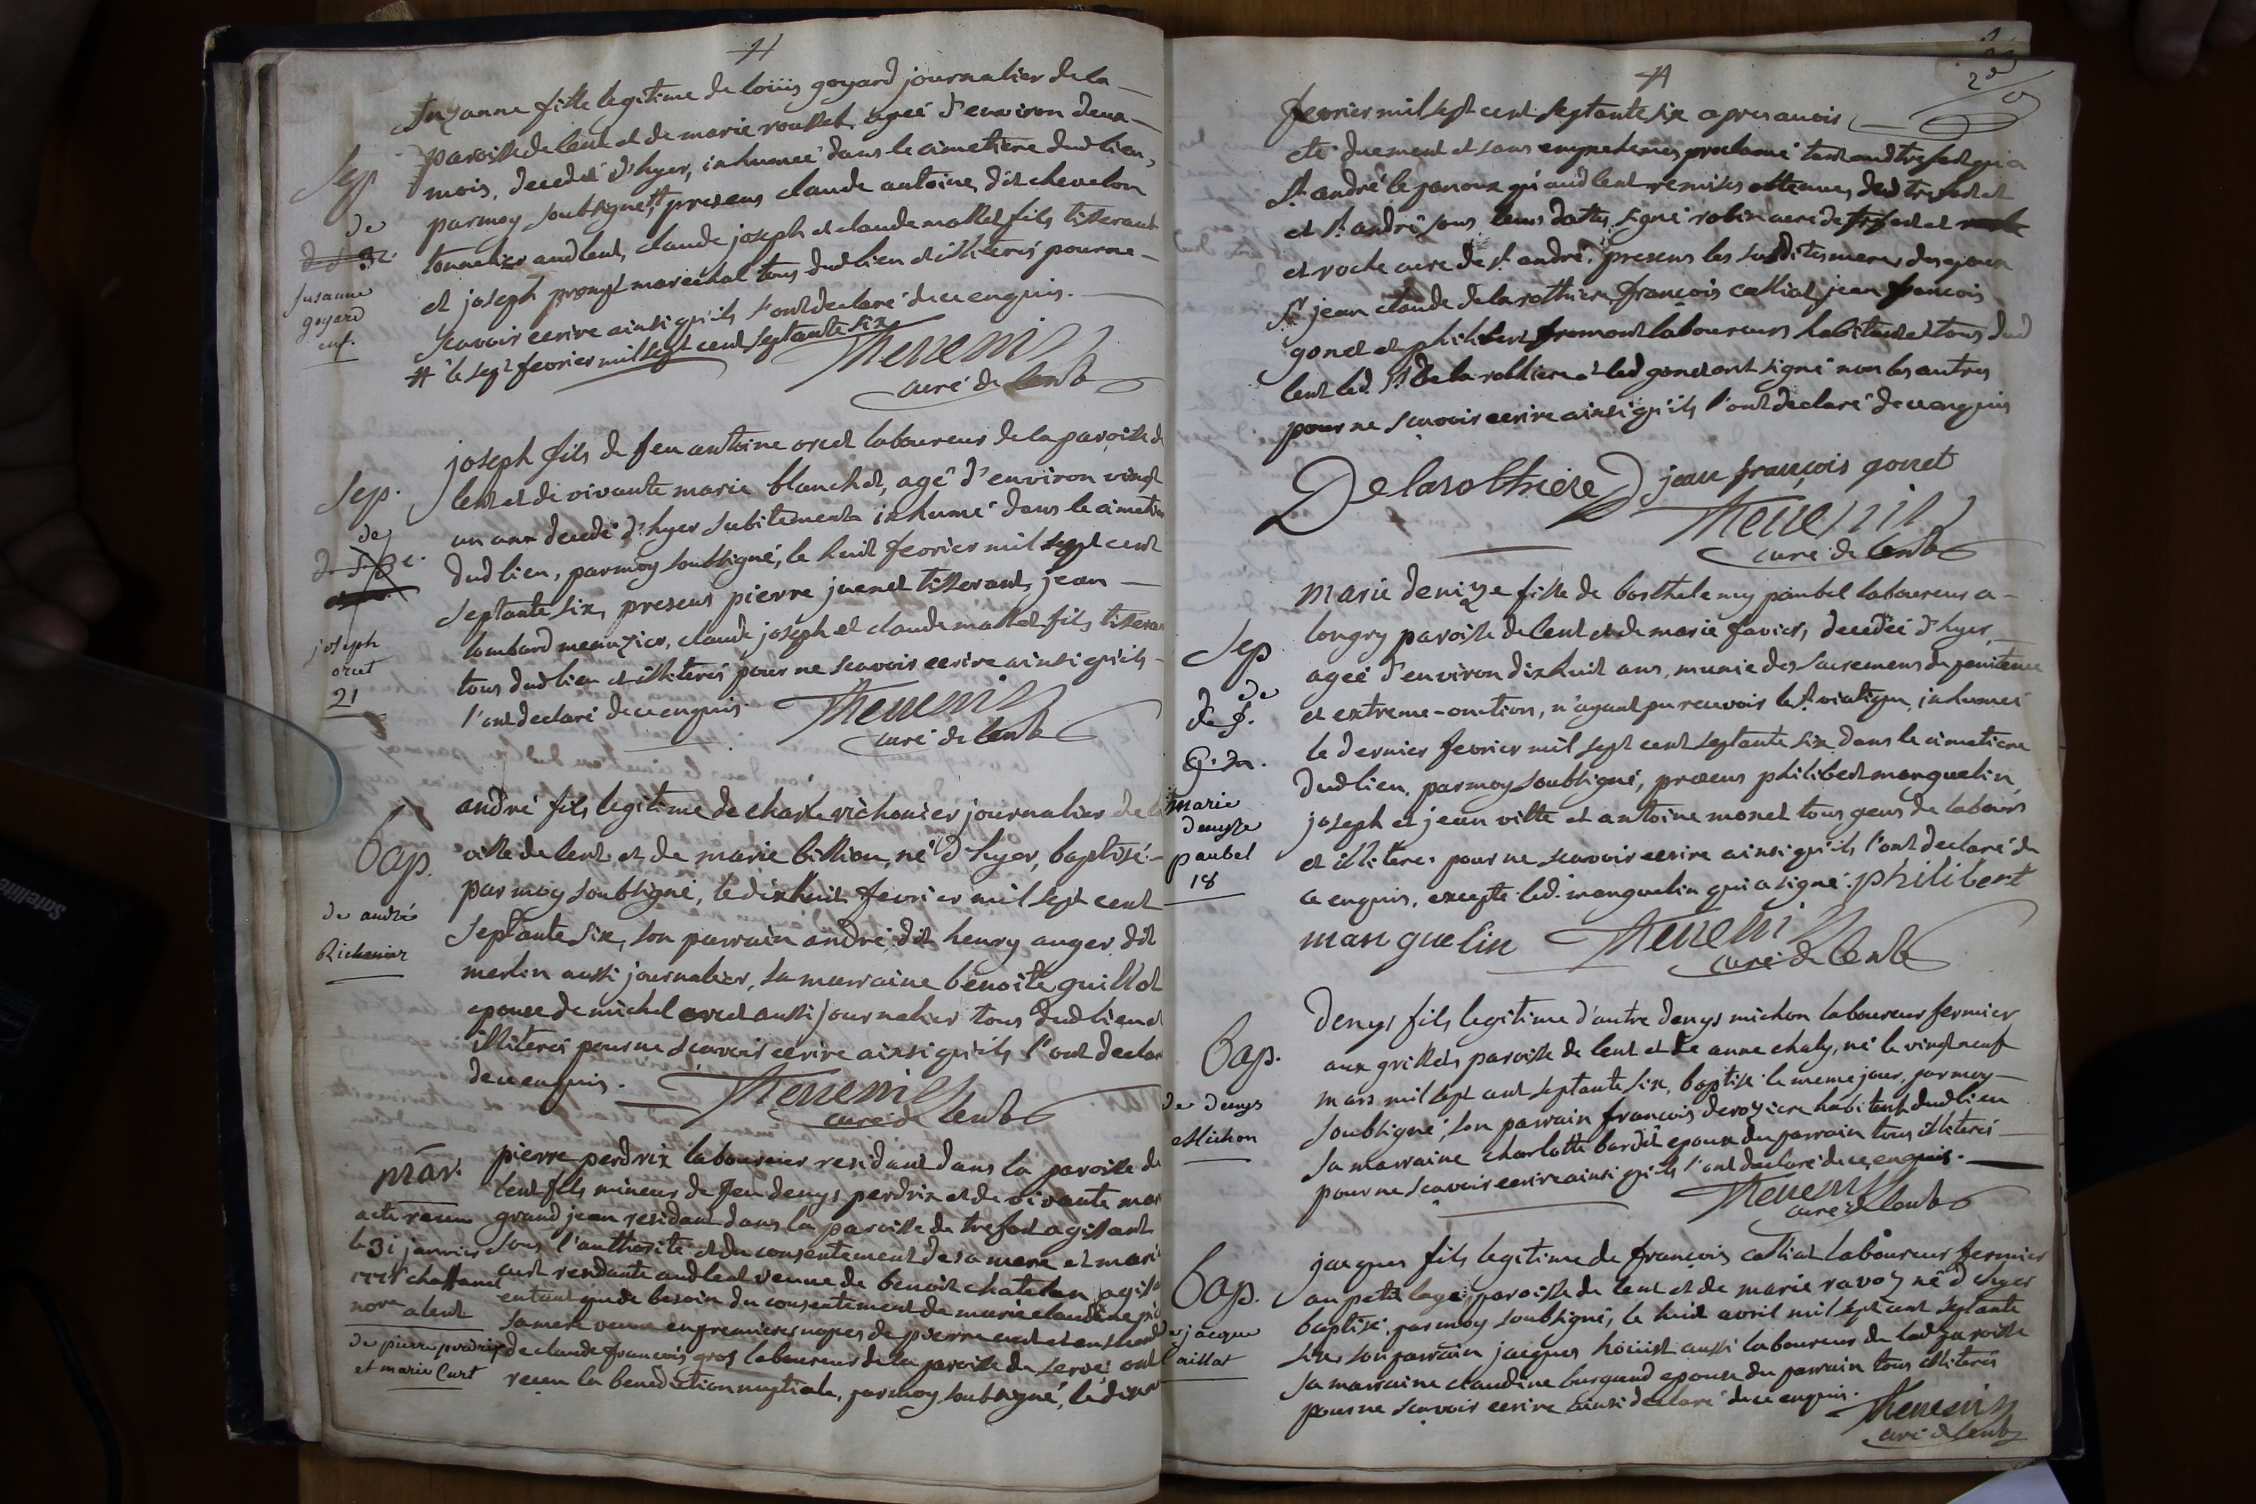 Suzanne fille legitime de loüis goyard journalier de la
paroisse de lent et de marie rousset, agée d'environ deux
mois, decedée d'hyer, inhumée dans le cimetiere dud lieu,
par moy soubsigné, # presens claude antoine dit chevelon
tonnelier aud lent, claude joseph et claude mallet fils tisserant
et joseph marechal tous dud lieu et illiterés pour ne
scavoir ecrire ainsi qu'ils l'ont declaré de ce enquis.
# le sept fevrier mil sept cent septante six
Thevenin
curé de Lent
Sep
de
susanne
goyard
enf.
joseph fils de feu antoine orcet laboureur de la paroisse de
lent et de vivante marie blanchet, agé d'environ vingt
un ans decedé d'hyer subitement inhumé dans le cimetiere
dud lieu, par moy soubsigné, le huit fevrier mil sept cent
septante six, presens pierre juenet tisserant, jean
lombard menuzier, claude joseph et claude mallet fils tisseran
tous dud lieu et illiterés pour ne scavoir ecrire ainsi qu'ils
l'ont declaré de ce enquis.
Thevenin
curé de Lent
Sep.
de
joseph
orcet
21
andré fils legitime de charle richonier journalier de la
ville de lent et de marie billion, né d'hyer, baptisé
par moy soubsigné, le dixhuit fevrier mil sept cent
septante six, son parrain andré dit henry auger dit
merlin aussi journalier, sa marraine benoite guillot
epouse de michel orcet aussi journalier tous dud lieu et
illiterés pour ne scavoir ecrire ainsi qu'ils l'ont declar
de ce enquis.
Thevenin
curé de Lent
Bap.
de andré
Richonier
pierre perdrix laboureur residant dans la paroisse de
lent fils mineur de feu denys perdrix et de vivante mar
grand jean residant dans la paroisse de trefort agissant
sous l'authorité et du consentement de sa mere et mari
curt residante aud lent veuve de benoit chatelan agiss
entant que de besoin du consentement de marie claudine
sa mere veuve en premieres nopces de pierre curt et en second
de claude françois gros laboureur de la paroisse de servas ont
receu la benediction nuptiale, par moy soubsigné, le
mar.
acte
le 31 janvier
1775
a lent
de pierre perdrix
et marie Curt
fevrier mil sept cent septante six apres avoir
eté duement et sans empechemens proclamé tant aud trefort qu'a
St. andré le panoux qu'aud lent remises obtenues dud trefort et
et St. andré sous leurs dattes signé robin curé de trefort et
et roche curé de St. andré, presens les susdites meres
Sr. jean claude delarothiere, françois calliat, jean françois
gonet et philibert fromont laboureurs habitant tous dud
lent led. Sr. delarothiere et led gonet ont signé non les autres
pour ne scavoir ecrire ainsi qu'ils l'ont declaré de ce enquis
Delarothiere jean françois gonet
Thevenin
curé de Lent
marie denize fille de barthelemy paubel laboureur a
longry paroisse de lent et de marie favier, decedée d'hyer,
agée d'environ dixhuit ans, munie des sacremens de penitence
et extreme-onction, n'ayant pu recevoir le St. viatique, inhumée
le dernier fevrier mil sept cent septante six dans le cimetiere
dud lieu, par moy soubsigné, presens philibert manguelin,
joseph et jean vitte et antoine monet tous gens de labeurs
et illiterés pour ne scavoir ecrire ainsi qu'ils l'ont declaré de
ce enquis, excepté led. manguelin qui a signé. philibert
manguelin Thevenin
curé de Lent
Sep
de
marie
denyse
paubel
18
denys fils legitime d'autre denys michon laboureur fermier
aux grillets paroisse de lent et de anne chaly, né le vingt neuf
mars mil sept cent septante six, baptisé le meme jour, par moy
soubsigné, son parrain françois deroziere habitant dud lieu
sa marraine charlotte bardet epouse du parrain tous illiterés
pour ne scavoir ecrire ainsi qu'ils l'ont declaré de ce enquis.
Thevenin
curé de Lent
Bap.
de denys
Michon
jacques fils legitime de françois calliat laboureur fermier
au petit lage, paroisse de lent et de marie ravoz né d'hyer
baptisé par moy soubsigné, le huit avril mil sept cent septante
six, son parrain jacques aussi laboureur de lad paroisse
sa marraine claudine burgaud epouse du parrain tous illiterés
pour ne scavoir ecrire ainsi declaré de ce enquis.
Thevenin
curé de Lent
Bap.
de jacque
aillat